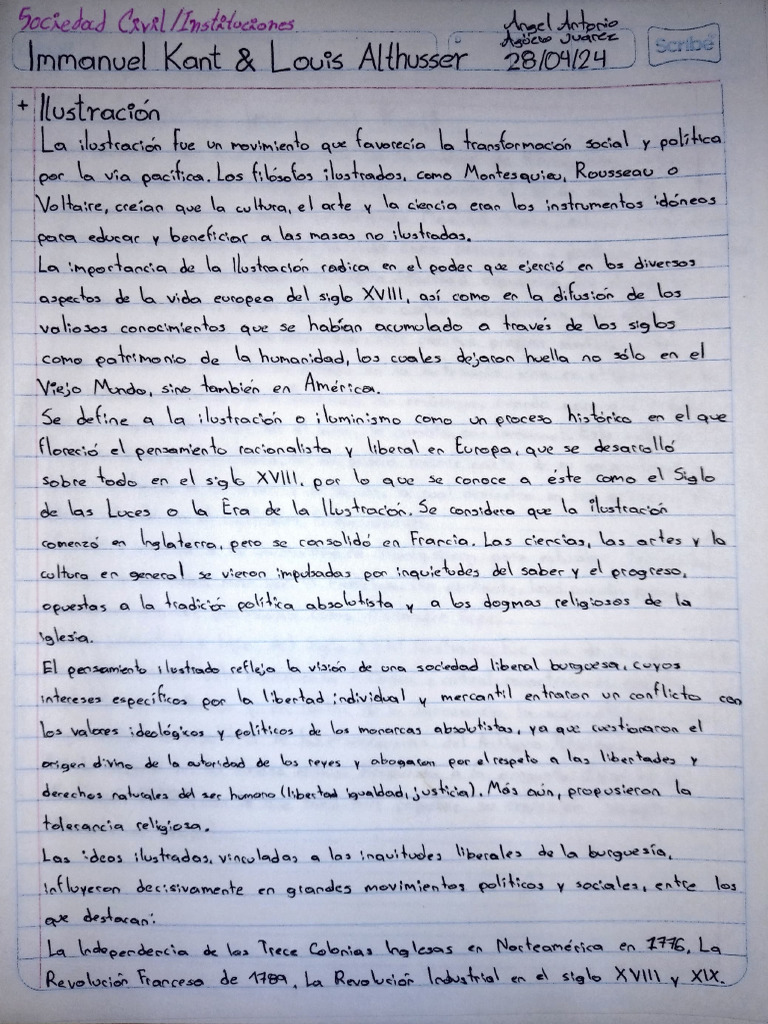 Sociedad Civil/Instituciones
Angel Antonio
Juarez
Immanuel Kant & Louis Althusser 28/04/24
Scribe
+ Ilustración
La ilustración fue un movimiento que favorecía la transformación social y política
por la vía pacífica. Los filósofos ilustrados, como Montesquieu, Rousseau o
Voltaire, creían que la cultura, el arte y la ciencia eran los instrumentos idóneos
para educar y beneficiar a las masas no ilustradas.
La importancia de la Ilustración radica en el poder que ejerció en los diversos
aspectos de la vida europea del siglo XVIII, así como en la difusión de los
valiosos conocimientos que se habían acumulado a través de los siglos
como patrimonio de la humanidad, los cuales dejaron huella no sólo en el
Viejo Mundo, sino también en América.
Se define a la ilustración o iluminismo como un proceso histórico en el que
floreció el pensamiento racionalista y liberal en Europa, que se desarrolló
sobre todo en el siglo XVIII, por lo que se conoce a éste como el Siglo
de las Luces o la Era de la Ilustración. Se considera que la ilustración
comenzó en Inglaterra, pero se consolidó en Francia. Las ciencias, las artes y la
cultura en general se vieron impulsadas por inquietudes del saber y el progreso,
opuestas a la tradición política absolutista y a los dogmas religiosos de la
iglesia.
El pensamiento ilustrado refleja la visión de una sociedad liberal burguesa, cuyos
intereses específicos por la libertad individual y mercantil entraron un conflicto con
los valores ideológicos y políticos de los monarcas absolutistas, ya que cuestionaron el
origen divino de la autoridad de los reyes y abogaron por el respeto a las libertades y
derechos naturales del ser humano (libertad igualdad, justicia). Más aún, propusieron la
tolerancia religiosa.
Las ideas ilustradas, vinculadas a las inquitudes liberales de la burguesía,
influyeron decisivamente en grandes movimientos políticos y sociales, entre los
que destacan:
La Independencia de las Trece Colonias Inglesas en Norteamérica en 1776, La
Revolución Francesa de 1789, La Revolución Industrial en el siglo XVIII y XIX.